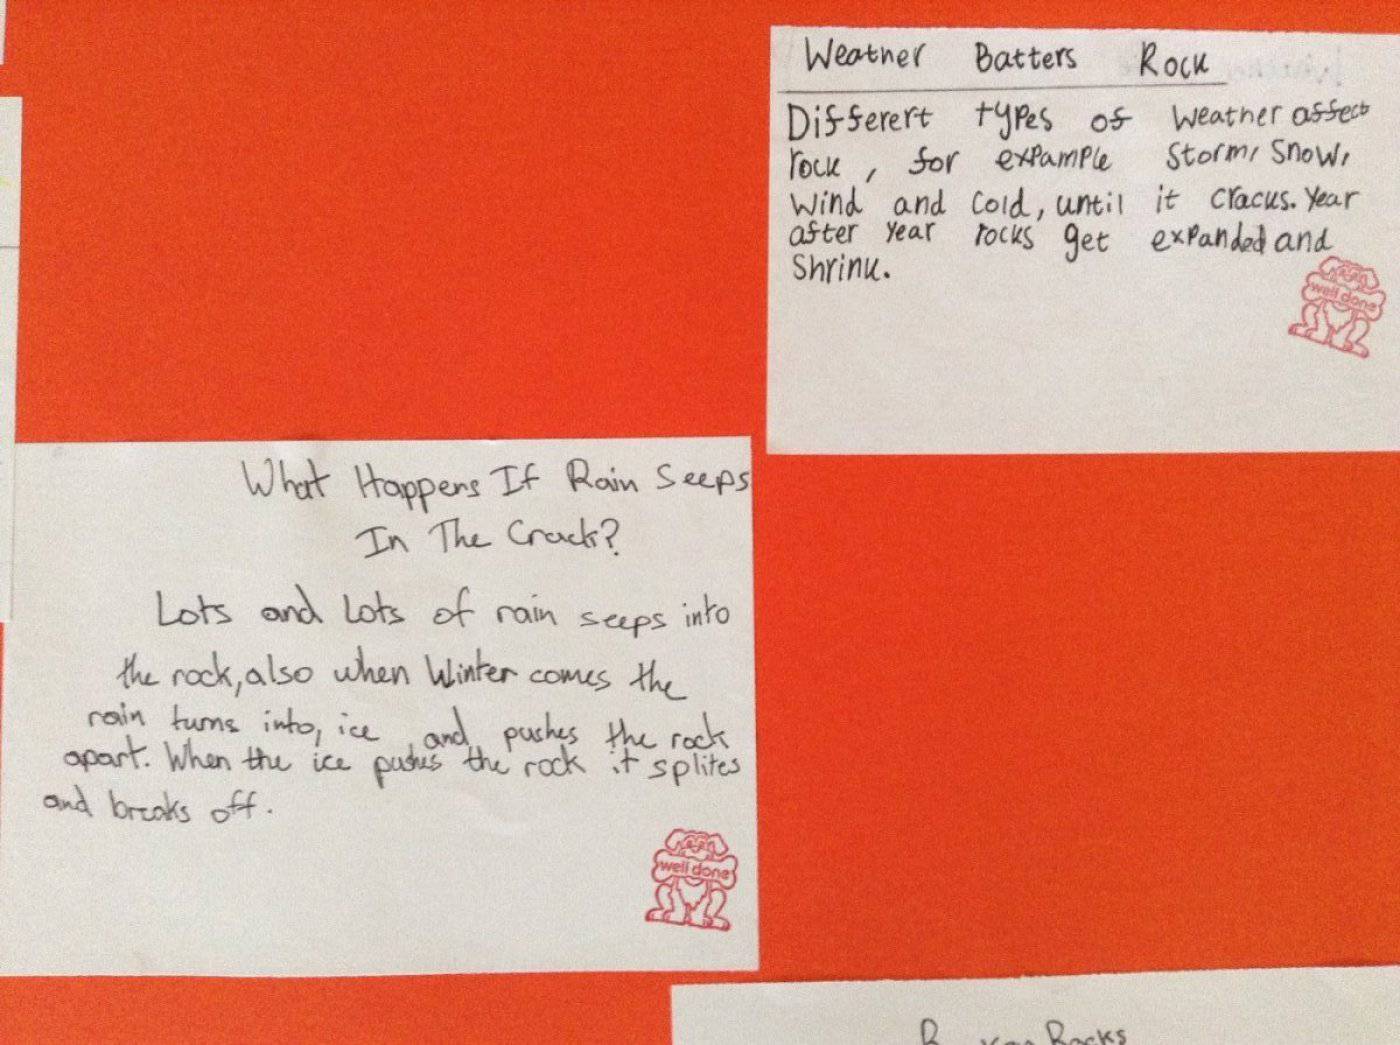 Weather Batters Rock
Differert types of weather affect
rock, for expample storm, snow,
wind and cold, until it cracks. Year
after year rocks get expanded and
shrink.
well done
What Happens If Rain Seeps
In The Crack?
Lots and lots of rain seeps into
the rock, also when Winter comes the
rain turns into, ice and pushes the rock
apart. When the ice pushes the rock it splites
and breaks off.
well done
Rocks